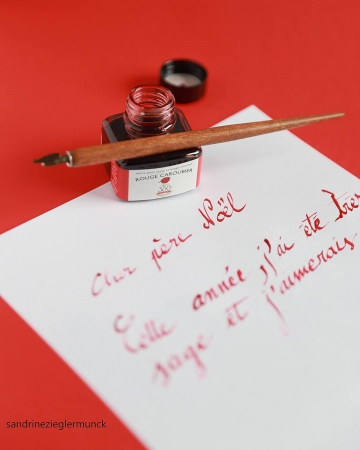 ROUGE CAROUBIER
Cher père Noël
Cette année, j'ai été très
sage et j'aimerais
sandrinezieglermunck